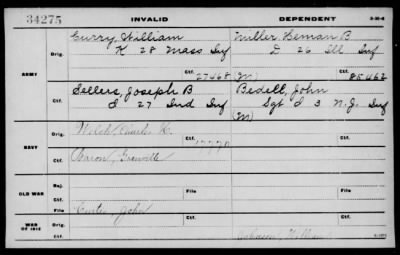 34275 INVALID DEPENDENT 3-35-6
Curry, William Miller Heman B
Orig. K 28 Mass Inf D 26 Ill Inf
ARMY Ctf. 27468 (M) Ctf. 85462
Sellers, Joseph B Bedell, John
Ctf. I 27 Ind Inf Sgt I 3 N.J. Inf
(M)
Welch, Charles K.
Orig. Ctf. 17770 Orig. Ctf.
NAVY
Baron, Granville
Ctf.
OLD WAR Rej. File File
Ctf. Curtis, John
WAR OF 1812 Orig. Ctf. Ctf.
Ctf. Johnson, William